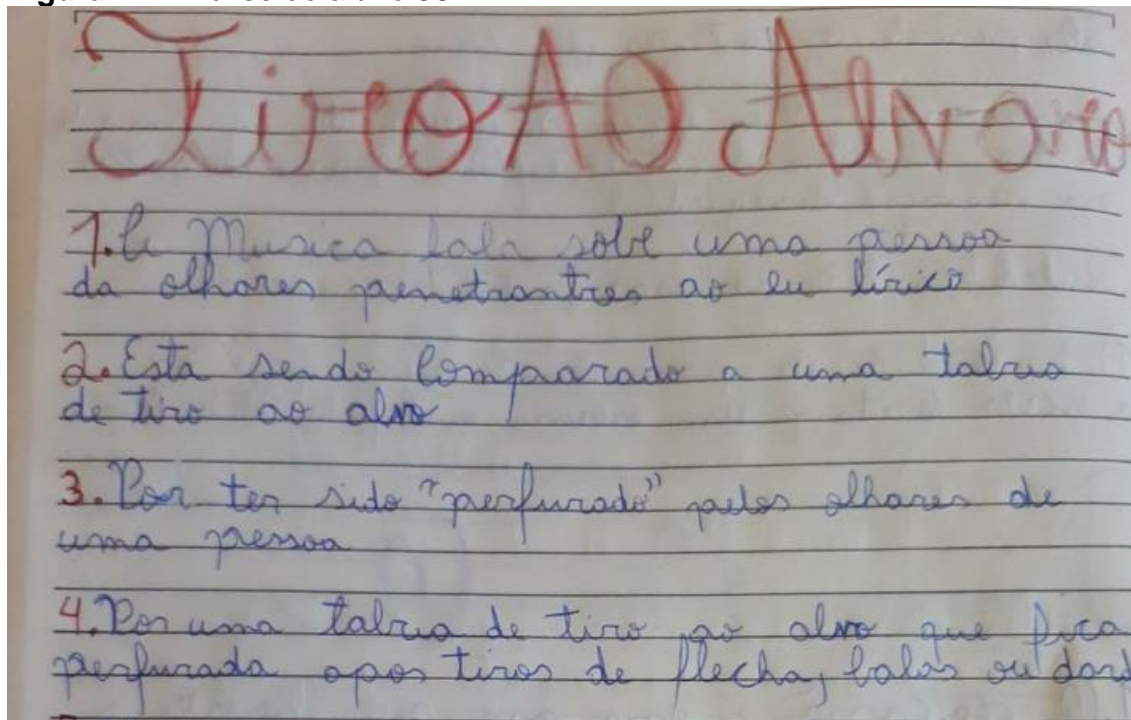 Tiro AO Alvaro
1. A Musica fala sobre uma pessoa
da olhares penetrantres ao eu lírico
2. Esta sendo Comparado a uma tabua
de tiro ao alvo
3. Por ter sido "perfurado" pelos olhares de
uma pessoa
4. Por uma tabua de tiro ao alvo que fica
perfurada apos tiros de flecha, balas ou dard